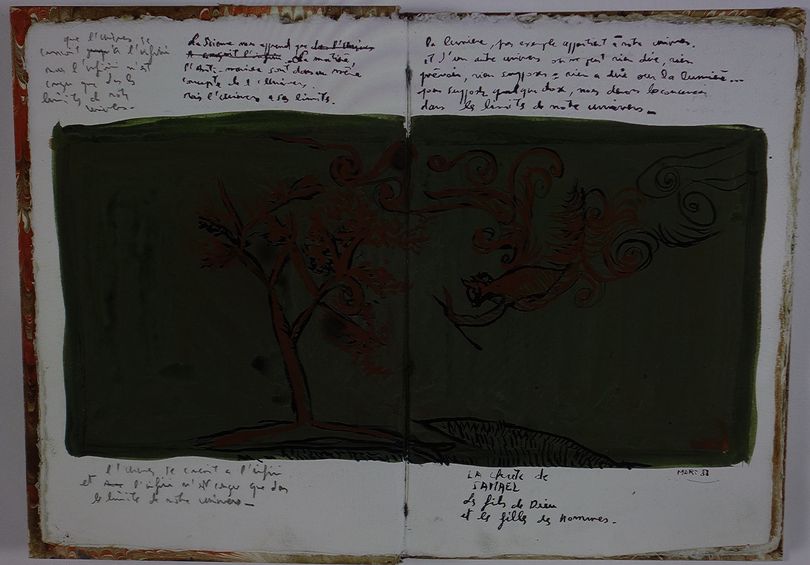 que l'univers se
connait jusqu'à l'infini
mais l'infini n'est
conçu que dans les
limites de notre
univers.
La Science nous apprend que
la matière,
l'Anti-matière sont dans un même
l'univers,
mais l'Univers a ses limits.
la lumière, par exemple appartient à notre univers.
et d'un autre univers on ne peut rien dire, rien
prévoir, rien supposer rien a dire sur la lumière...
pour supposer quelque chose, nous devons
dans les limites de notre univers_
l'Univers se connait a l'infini
et l'infini n'est conçu que dans
les limites de notre univers_
LA chute de
SAMAEL
Les fils de Dieu
et les filles des Hommes.